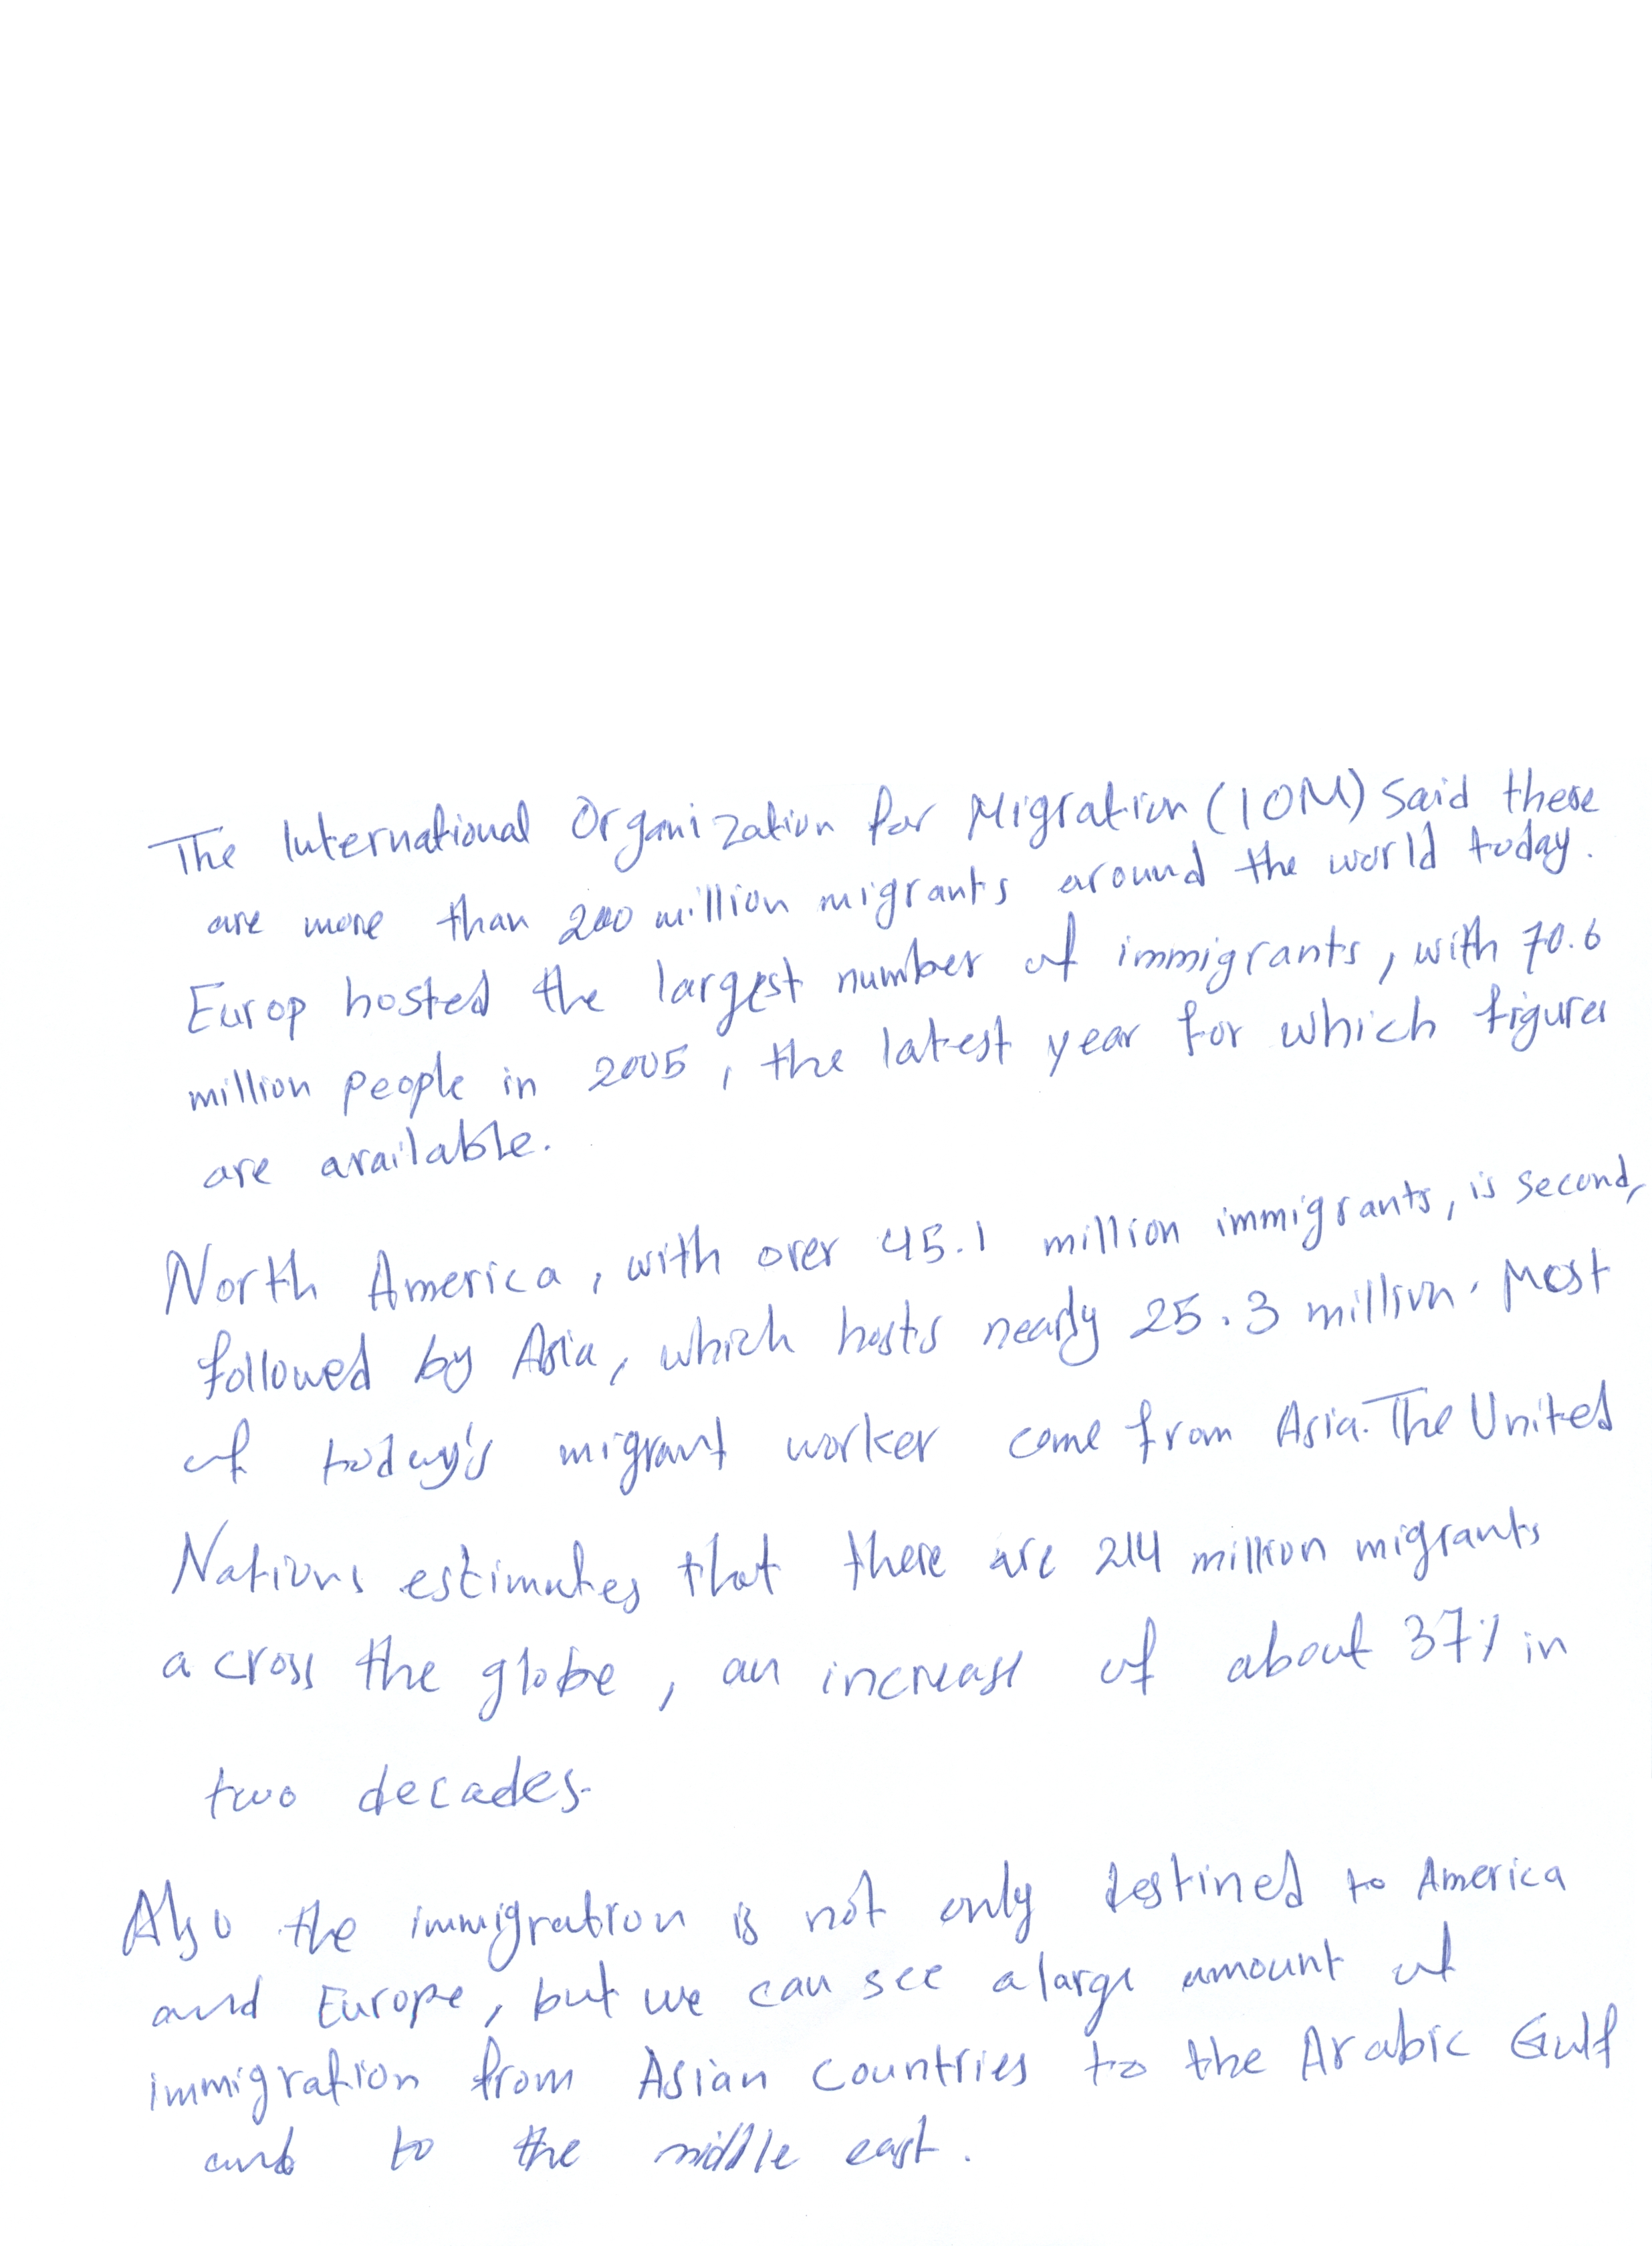 The International Organization for Migration (IOM) said there
are more than 200 million migrants around the world today.
Europ hosted the largest number of immigrants, with 70.6
million people in 2005, the latest year for which figures
are available.
North America, with over 45.1 million immigrants, is second,
followed by Asia, which hosts nearly 25.3 million. Most
of today's migrant worker come from Asia. The United
Nations estimates that there are 214 million migrants
across the globe, an increase of about 37% in
two decades.
Also the immigration is not only destined to America
and Europe, but we can see a large amount of
immigration from Asian countries to the Arabic Gulf
and to the middle east.